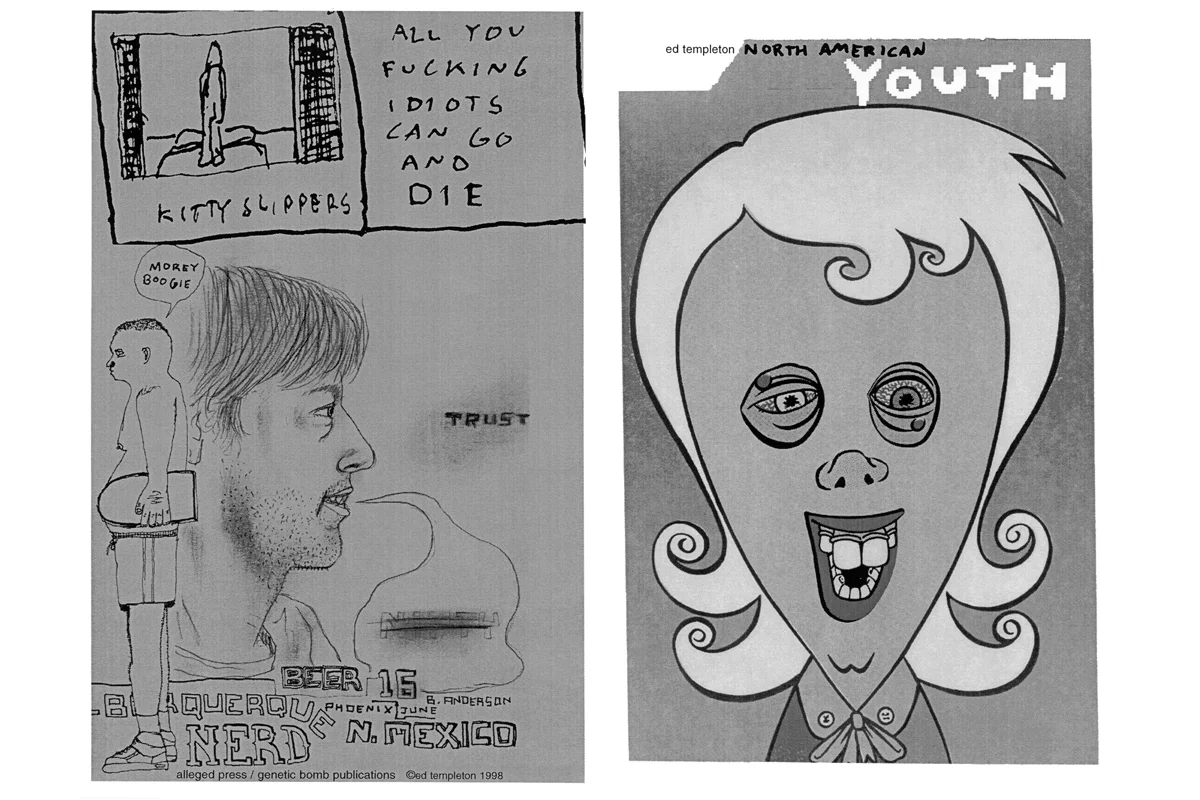 ALL YOU
FUCKING
IDIOTS
CAN GO
AND
DIE
KITTY SLIPPERS
MOREY
BOOGIE
TRUST
BEER 16
B. ANDERSON
PHOENIX JUNE
QUERQUE
NERD
N. MEXICO
alleged press / genetic bomb publications ©ed templeton 1998
ed templeton NORTH AMERICAN
YOUTH